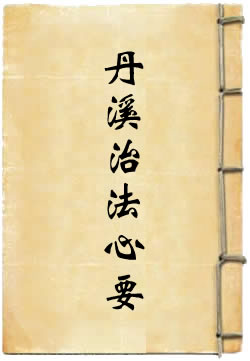 丹溪治法心要